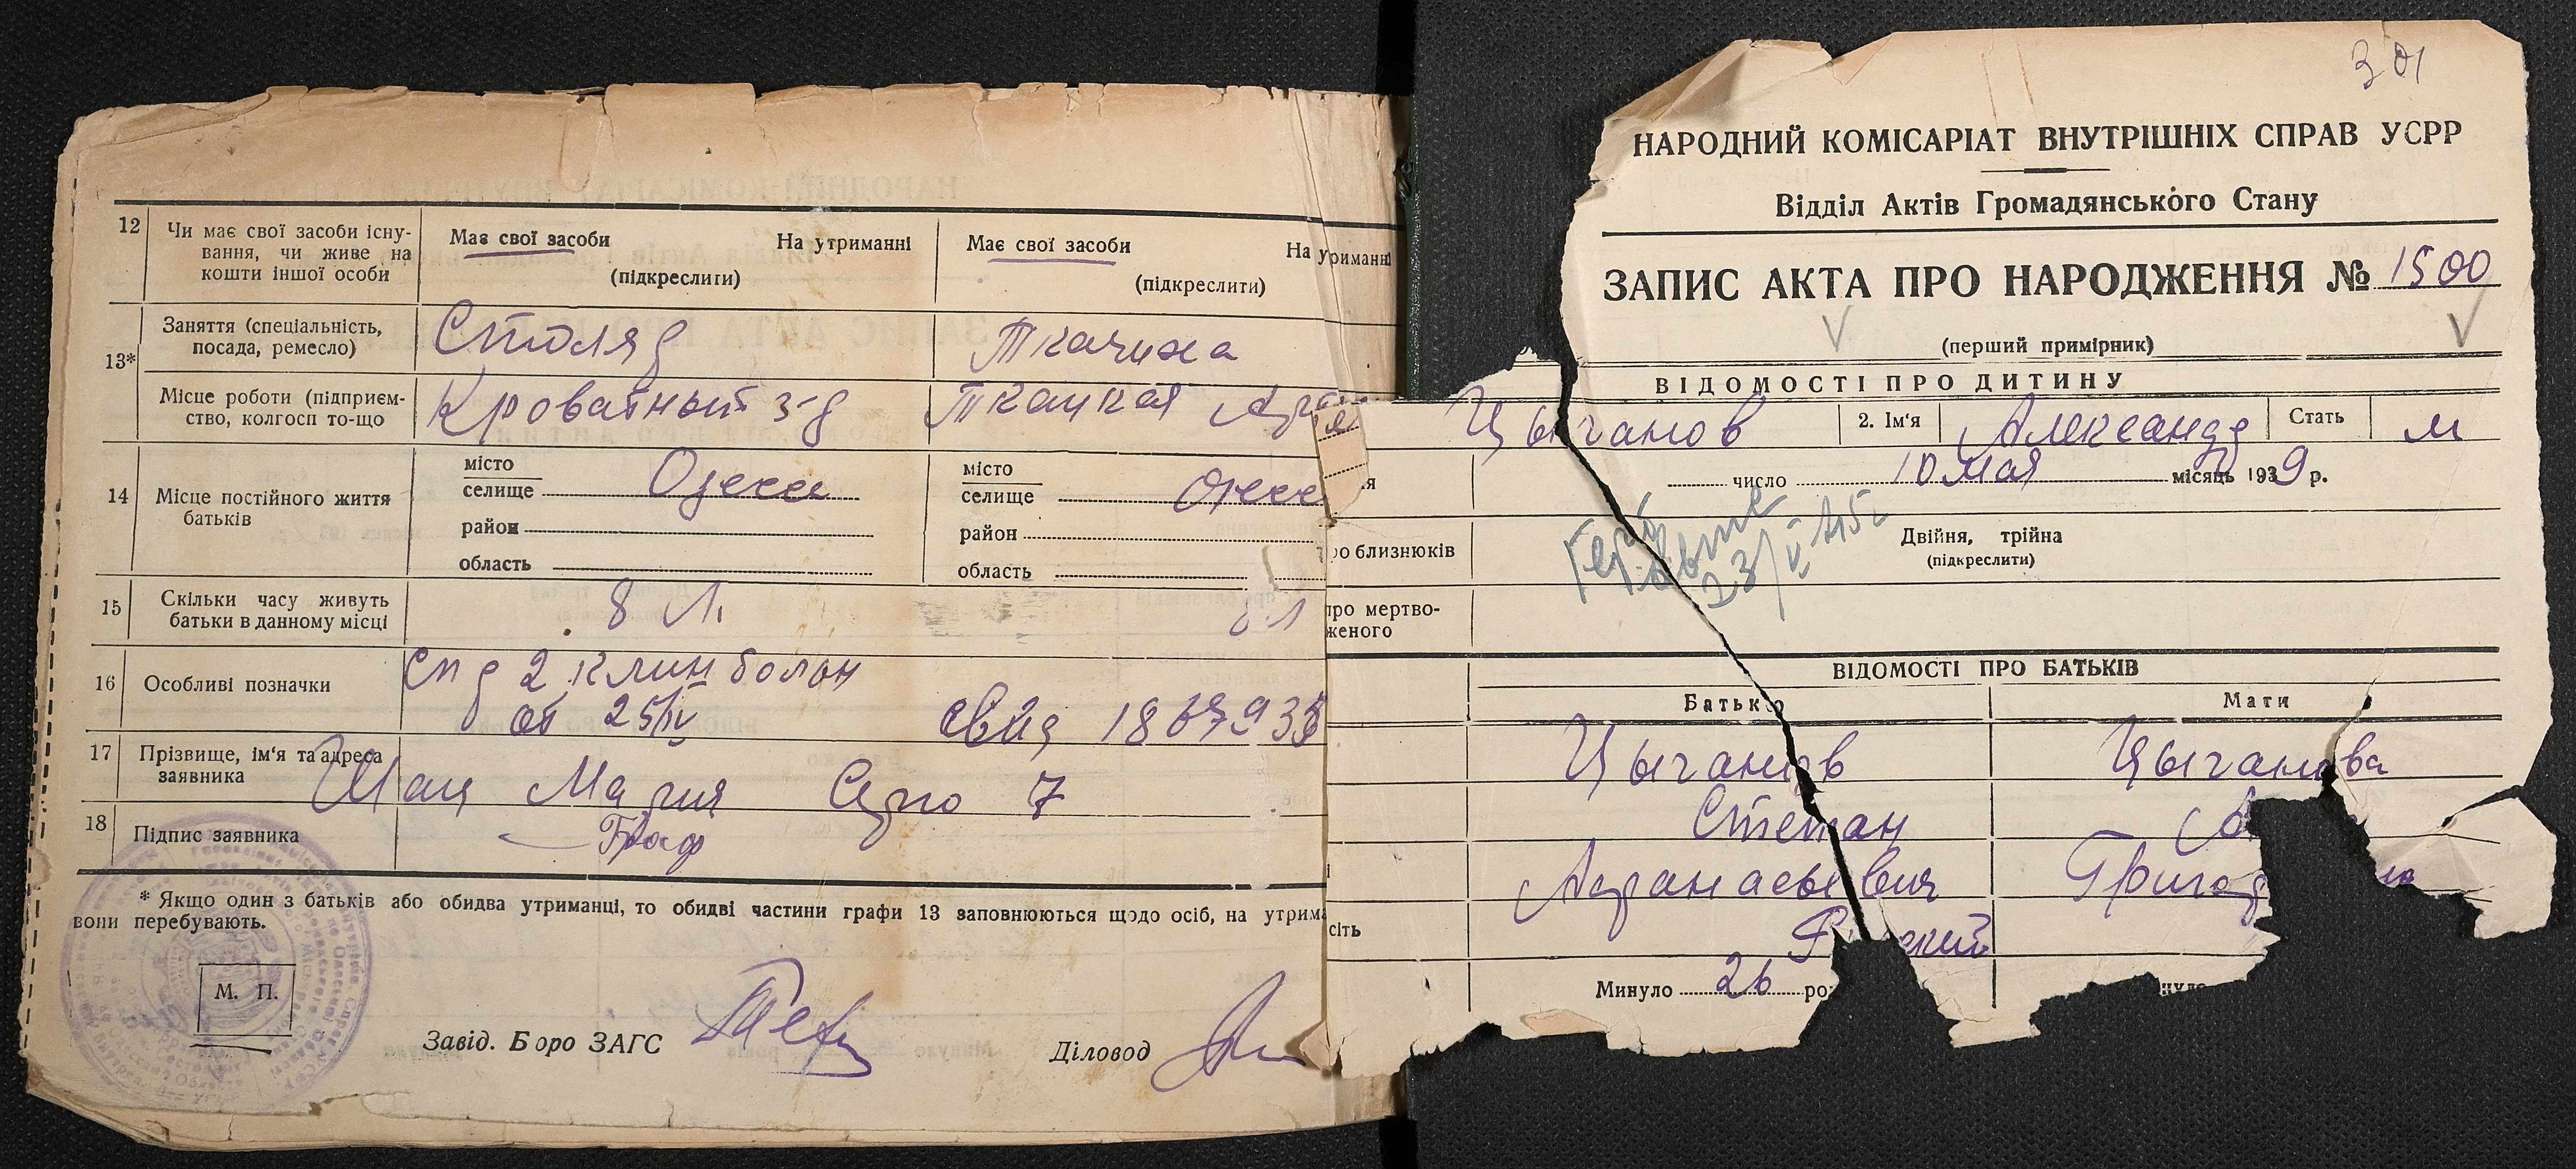 12 Чи має свої засоби існу-
вання, чи живе на
кошти іншої особи
Має свої засоби На утриманні
(підкреслити)
Має свої засоби На утриманні
(підкреслити)
13* Заняття (спеціальність,
посада, ремесло)
Столяр Ткачиха
Місце роботи (підприєм-
ство, колгосп то-що
Кроватный з-д Ткацкая
14 Місце постійного життя
батьків
місто
селище Одесса
район
область
місто
селище Одесс
район
область
15 Скільки часу живуть
батьки в данному місці
8 л.
16 Особливі позначки
2 клин
от 25/IV
17 Прізвище, ім'я та адреса
заявника
Мария 7
18 Підпис заявника
* Якщо один з батьків або обидва утриманці, то обидві частини графи 13 заповнюються щодо осіб, на утрим
вони перебувають.
М. П.
Завід. Бюро ЗАГС
Діловод
301
НАРОДНИЙ КОМІСАРІАТ ВНУТРІШНІХ СПРАВ УСРР
Відділ Актів Громадянського Стану
ЗАПИС АКТА ПРО НАРОДЖЕННЯ № 1500
(перший примірник)
ВІДОМОСТІ ПРО ДИТИНУ
Цыганов 2. Ім'я Александр Стать м
число 10 мая місяць 1939 р.
про близнюків
Двійня, трійна
(підкреслити)
23/V 45
про мертво-
женого
ВІДОМОСТІ ПРО БАТЬКІВ
Батько Мати
Цыганов Цыганова
Степан
Афанасьевич Григор
сіть Русский
Минуло 26 ро